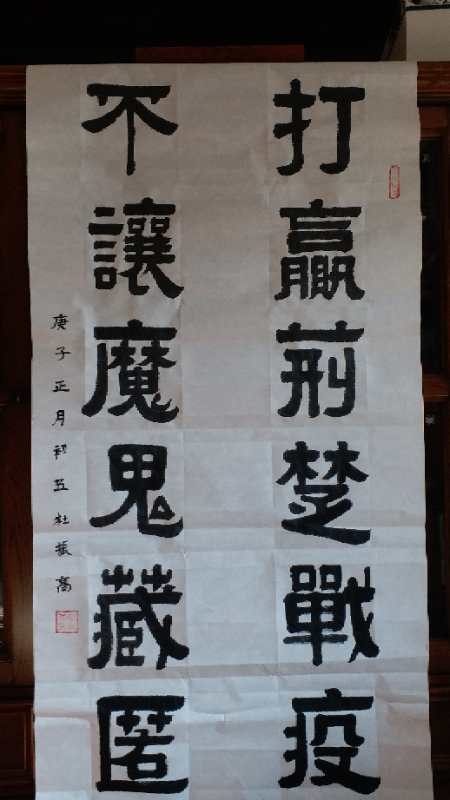 打贏荊楚戰疫
不讓魔鬼藏匿
庚子正月初五杜振高